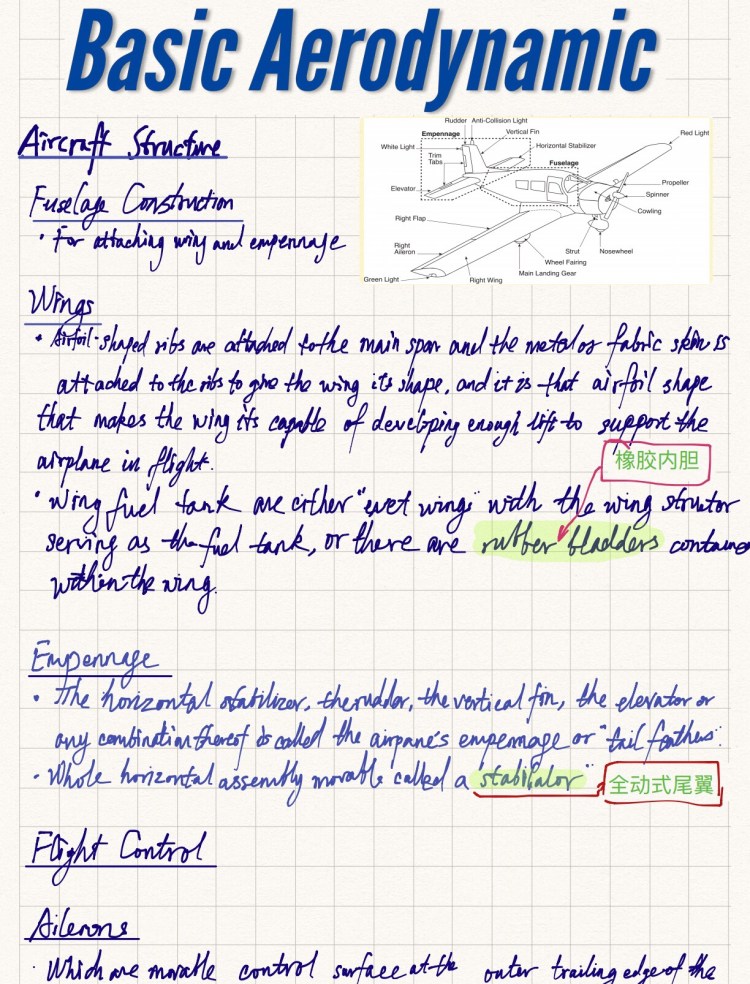 Basic Aerodynamic
Aircraft Structure
Rudder Anti-Collision Light
Empennage
Vertical Fin
Red Light
White Light
Horizontal Stabilizer
Trim
Tabs
Fuselage
Elevator
Propeller
Spinner
Cowling
Right Flap
Right
Aileron
Strut
Nosewheel
Wheel Fairing
Main Landing Gear
Green Light
Right Wing
Fuselage Construction
· For attaching wing and empennage
Wings
· Airfoil-shaped ribs are attached to the main spar and the metal or fabric skin is
attached to the ribs to give the wing its shape, and it is that airfoil shape
that makes the wing its capable of developing enough lift to support the
airplane in flight.
橡胶内胆
· Wing fuel tank are either "wet wing" with the wing
serving as the fuel tank, or there are rubber bladders
within the wing.
Empennage
· The horizontal stabilizer, the rudder, the vertical fin, the elevator or
any combination thereof is called the airpane's empennage or "tail feathers".
· Whole horizontal assembly movable called a stabilator"
全动式尾翼
Flight Control
Ailerons
· Which are movable control surface at the outer trailing edge of the